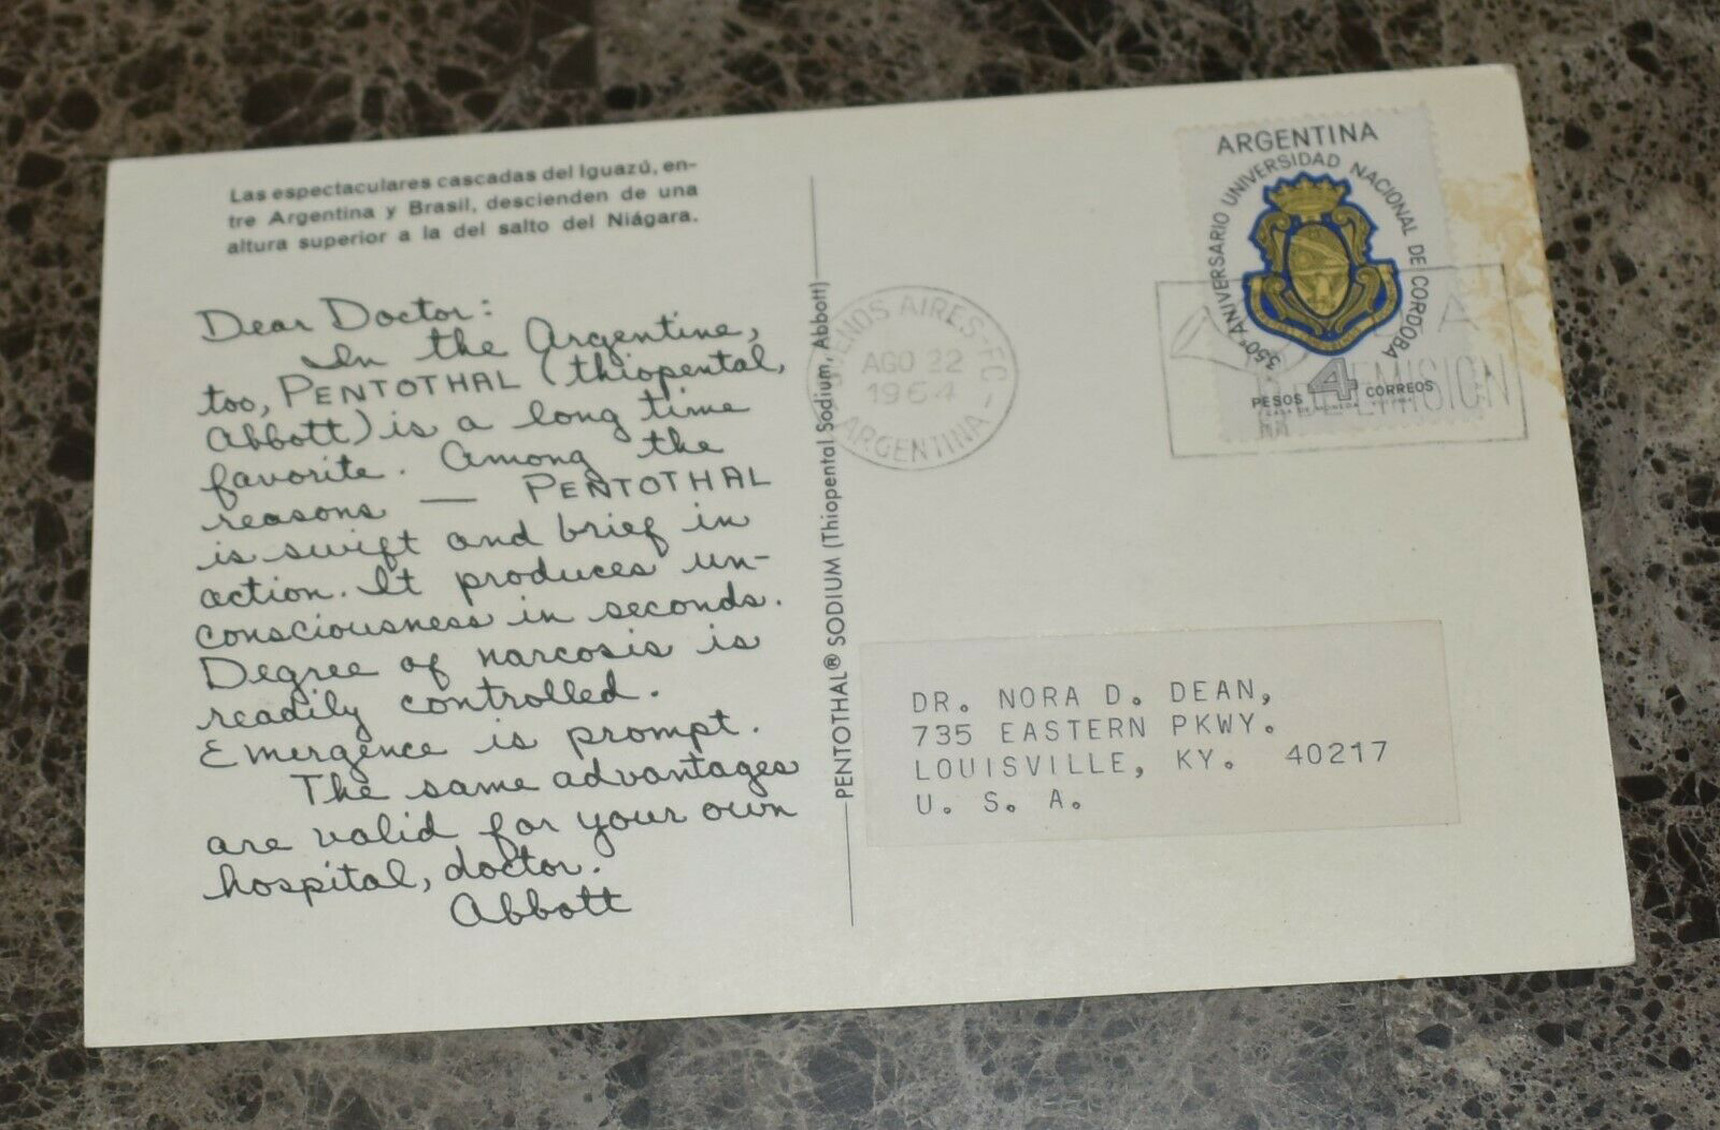 Las espectaculares cascadas del Iguazú, en-
tre Argentina y Brasil, descienden de una
altura superior a la del salto del Niágara.
Dear Doctor:
In the Argentine,
too, PENTOTHAL (thiopental,
Abbott) is a long time
favorite. Among the
reasons — PENTOTHAL
is swift and brief in
action. It produces un-
consciousness in seconds.
Degree of narcosis is
readily controlled.
Emergence is prompt.
The same advantages
are valid for your own
hospital, doctor.
Abbott
PENTOTHAL® SODIUM (Thiopental Sodium, Abbott)
BUENOS AIRES-F.C.
AGO 22
1964
ARGENTINA
ARGENTINA
350º ANIVERSARIO UNIVERSIDAD NACIONAL DE CORDOBA
PESOS 4 CORREOS
EMISION
DR. NORA D. DEAN,
735 EASTERN PKWY.
LOUISVILLE, KY. 40217
U. S. A.